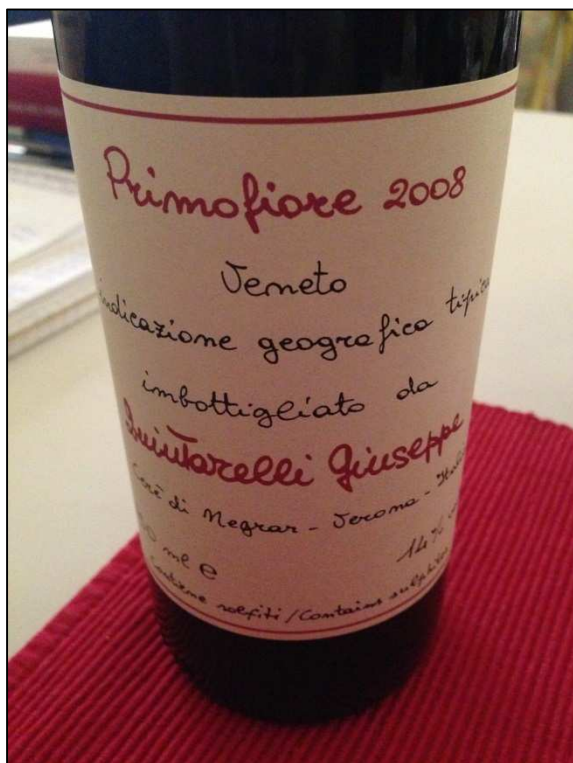 Primofiore 2008
Veneto
indicazione geografica tipica
imbottigliato da
Quintarelli Giuseppe
Cerè di Negrar - Verona - Italia
0 ml e
14%
contiene solfiti / Contains sulphites